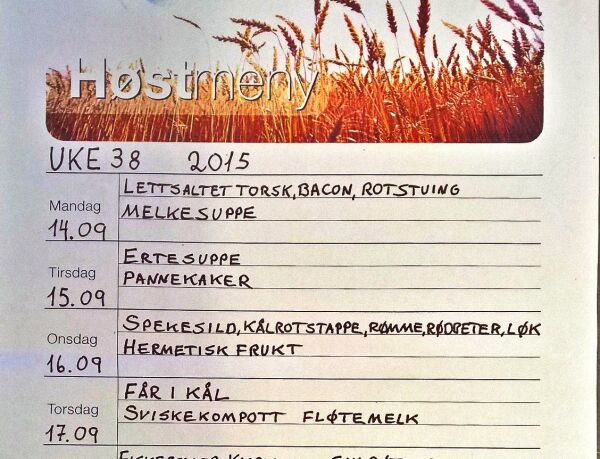 Høstmeny
UKE 38 2015
LETTSALTET TORSK, BACON, ROTSTUING
Mandag
MELKESUPPE
14.09
ERTESUPPE
Tirsdag
PANNEKAKER
15.09
SPEKESILD, KÅLROTSTAPPE, RØMME, RØDBETER, LØK
Onsdag
HERMETISK FRUKT
16.09
FÅR I KÅL
Torsdag
SVISKEKOMPOTT FLØTEMELK
17.09